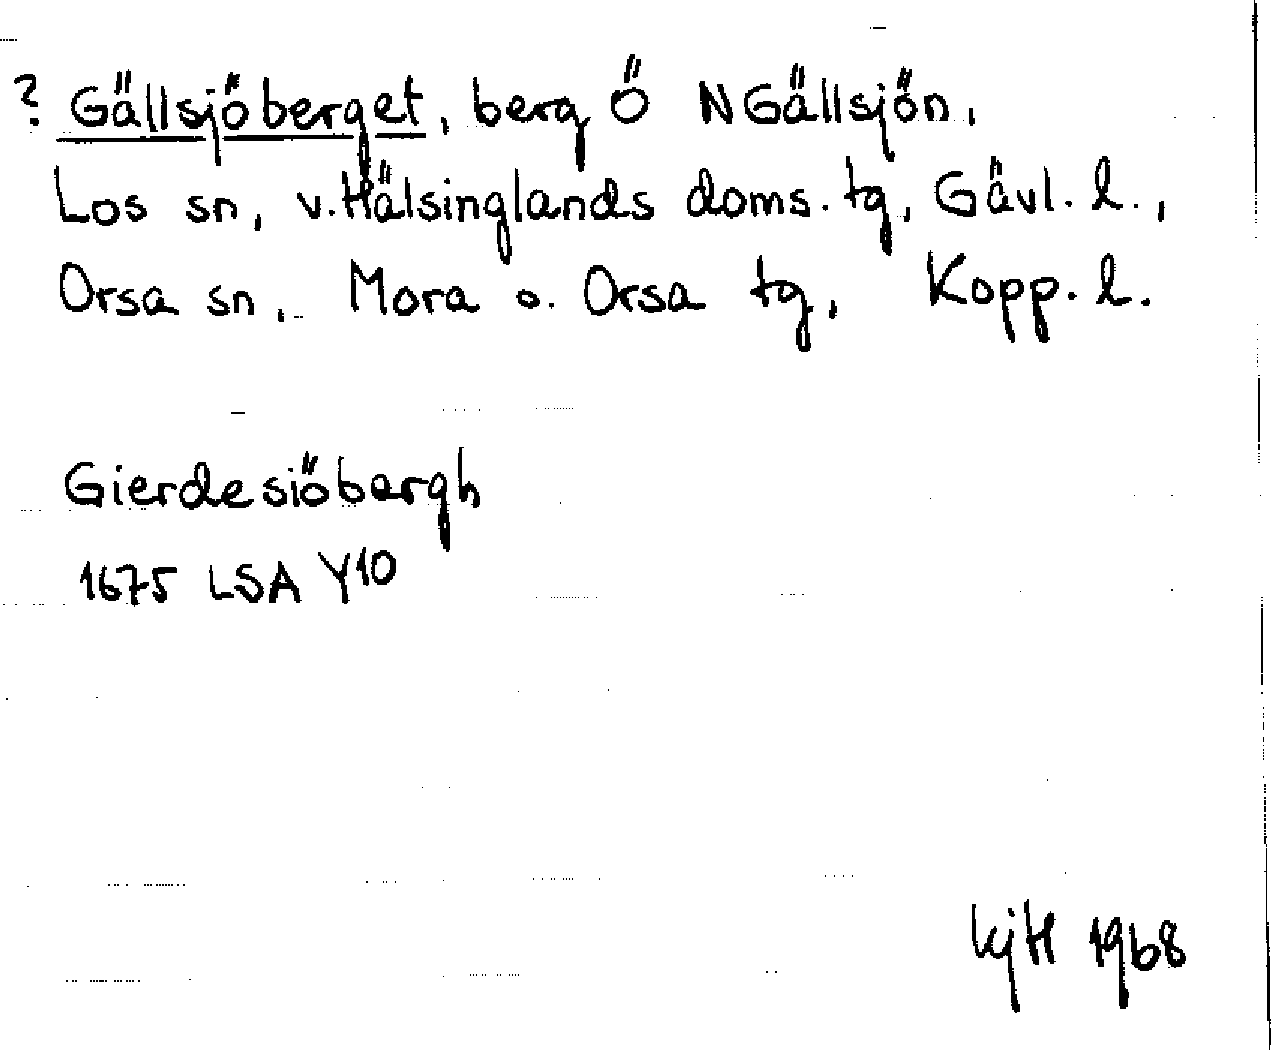 ? Gällsjöberget, berg Ö N Gällsjön,
Los sn, v. Hälsinglands doms. tg, Gävl. l.,
Orsa sn, Mora o. Orsa tg, Kopp. l.
Gierdesiöbergh
1675 LSA Y10
1968